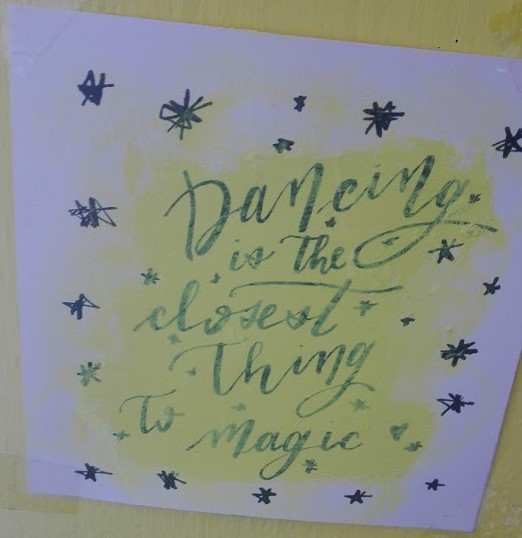 Dancing
is the
closest
Thing
To
magic